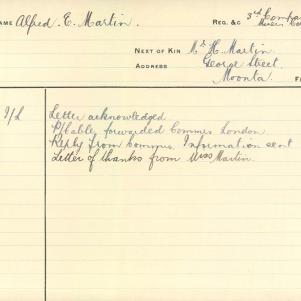 NAME Alfred. E. Martin. REG. &C 3rd Compa
NEXT OF KIN Mr H. Martin.
ADDRESS George Street.
Moonta.
I/L Letter acknowledged
forwarded Commrs London.
Reply from Commrs. Information sent
Letter of thanks from Miss Martin.